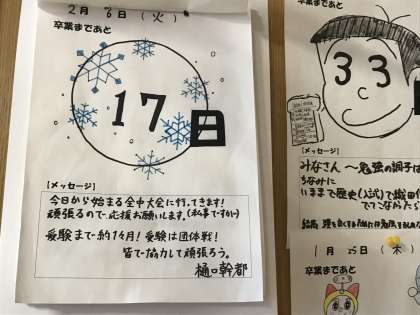 2月6日(火)
卒業まであと
17日
【メッセージ】
今日から始まる全中大会に行ってきます!
頑張るので応援お願いします。(私事ですが…)
受験まで約1ヶ月!受験は団体戦!
皆で協力して頑張ろう。
樋口幹都
卒業まであと
33
【メッセージ】
みなさん〜勉強の調子は
ちなみに
いままで歴史(公式)で織田信
でてこなかったら
1月 日(木)
卒業まであと